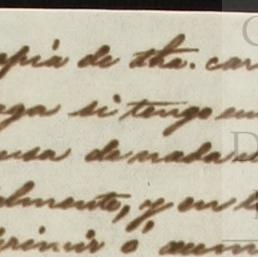 opia de dha. car
aga si tengo en
usa de nada
lmente, y en l
primir ó aum